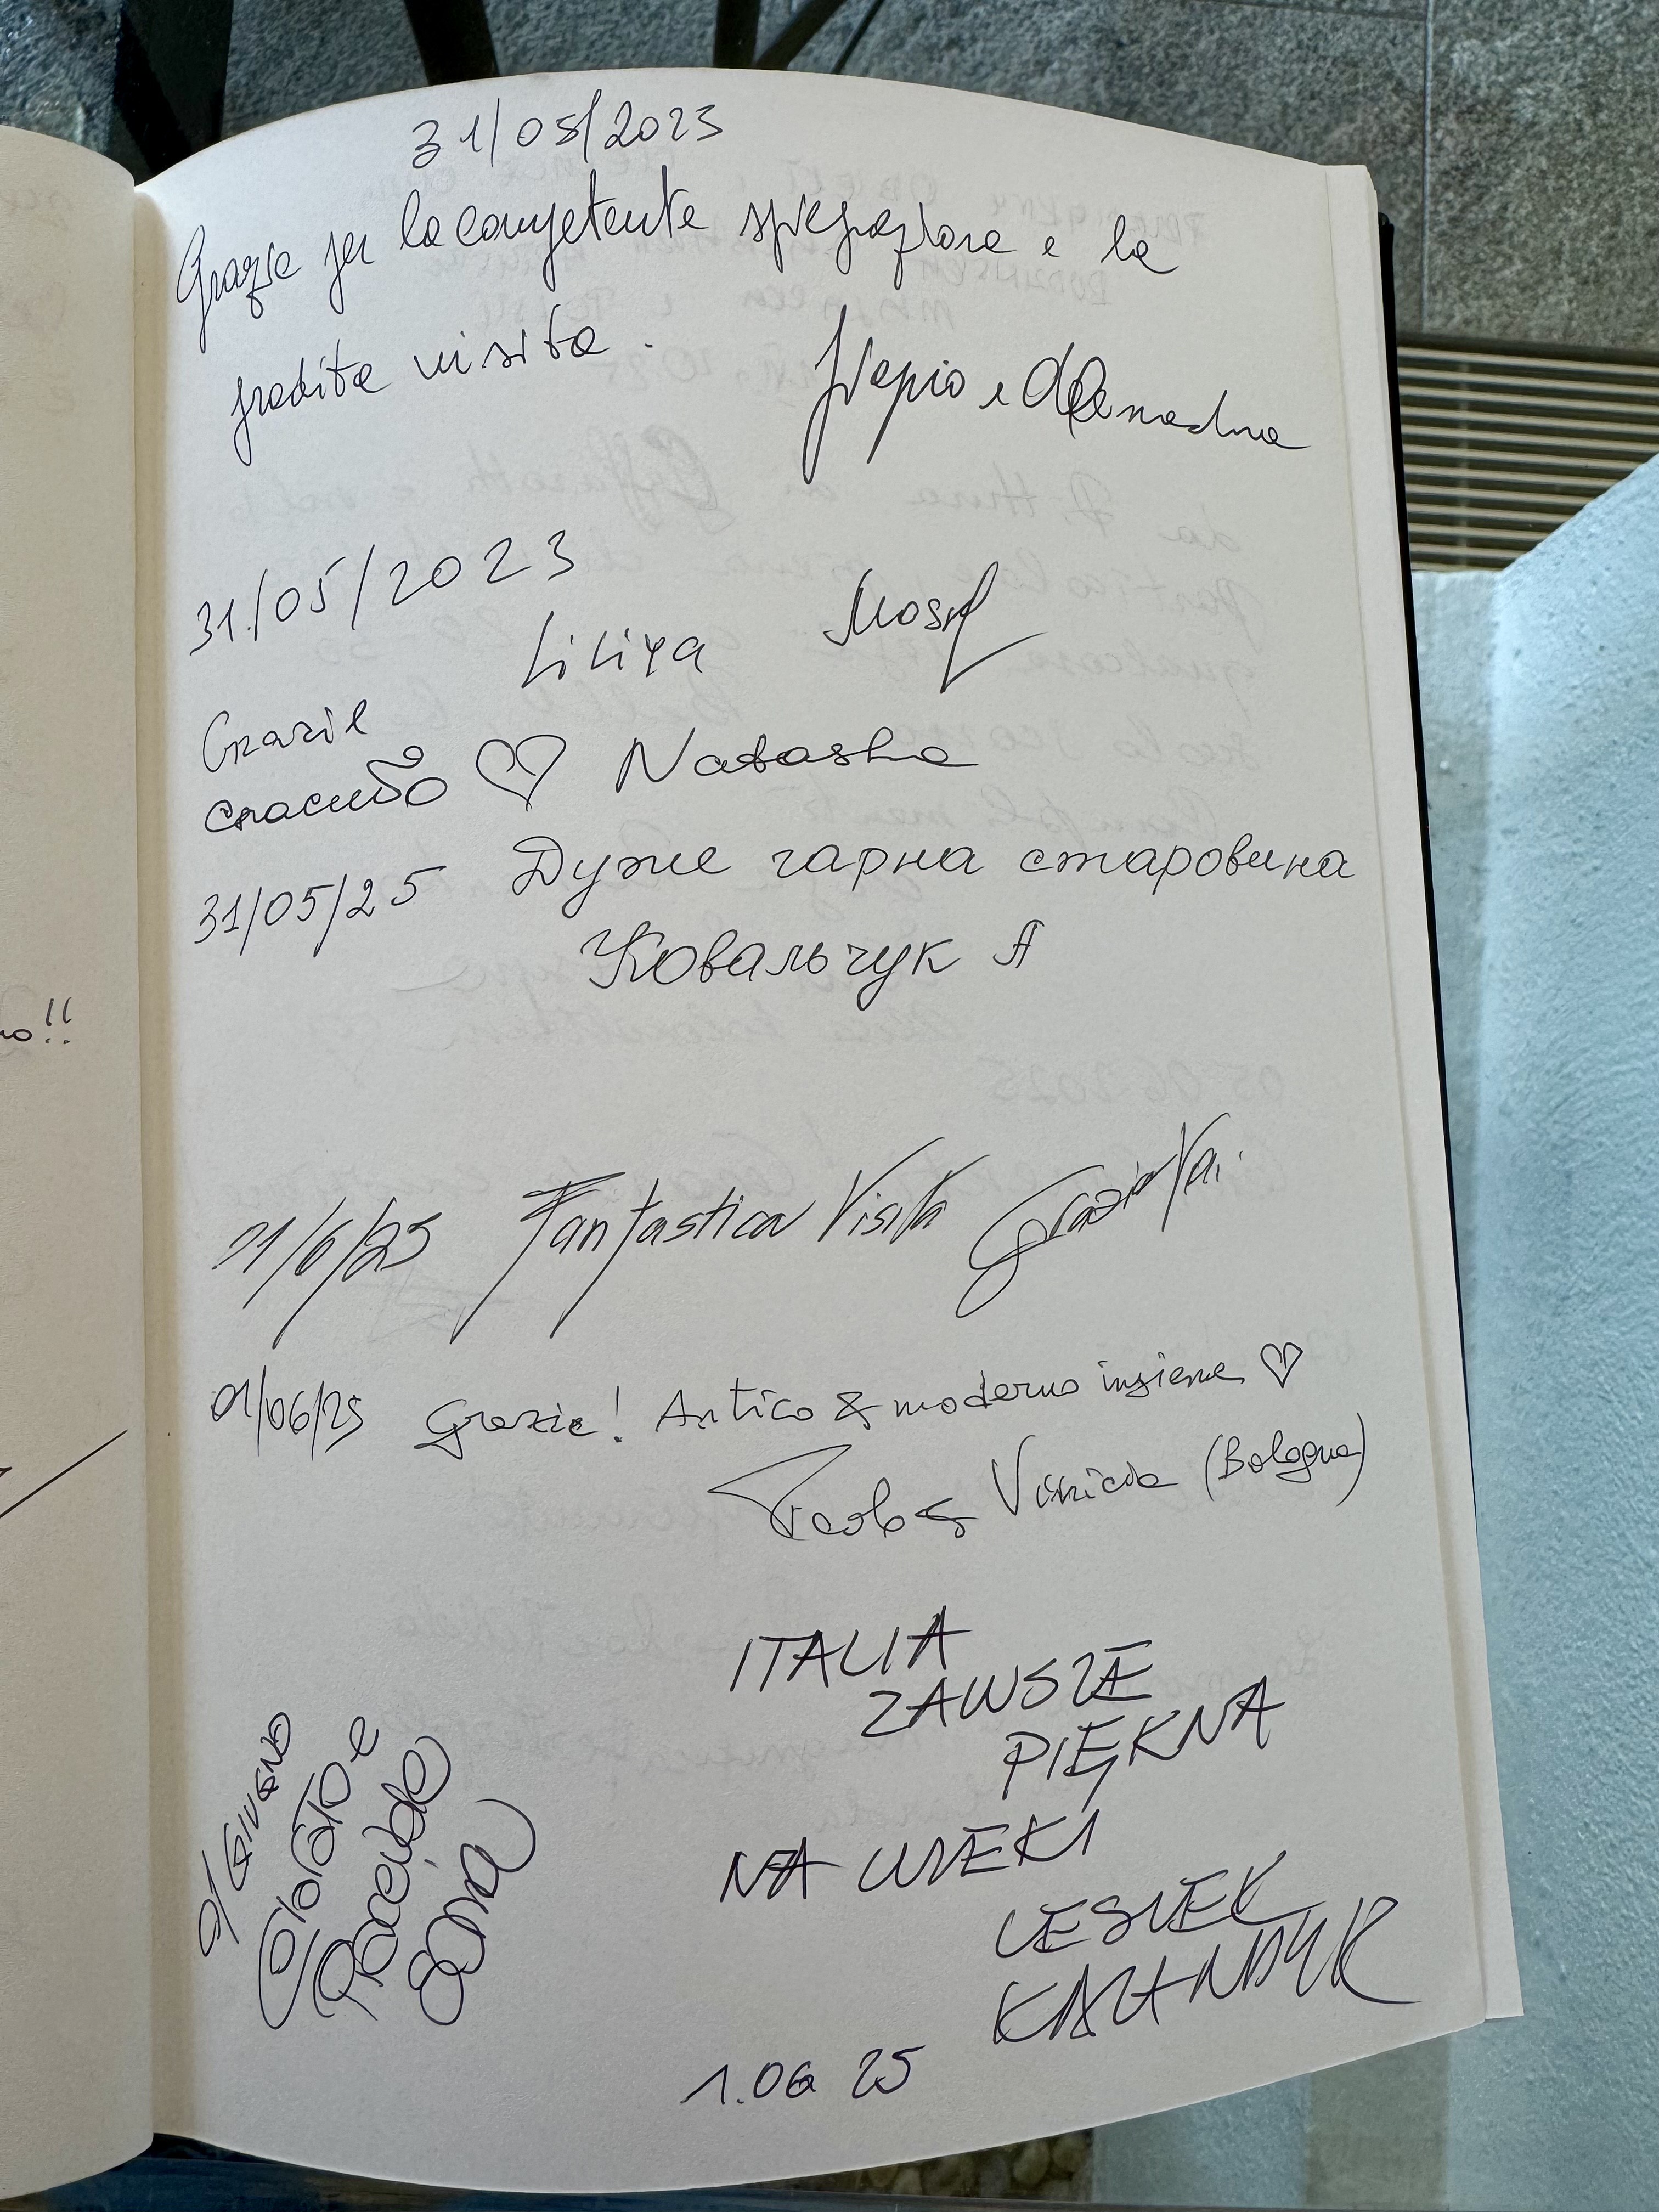 31/05/2023
Grazie per la competente spiegazione e la
gradita visita.
31/05/2023
Liliya
Grazie
спасибо ♡ Natasha
31/05/25 Дуже гарна старовина
Ковальчук А
01/6/25 Fantastica Visita Grazie
01/06/25 Grazie! Antico & moderno insieme ♡
Paolo & Vinicia (Bologna)
ITALIA
ZAWSZE
PIĘKNA
NA WIEKI
LESZEK
1.06 25
01 GIUGNO
Placido e
Sonia
no!!